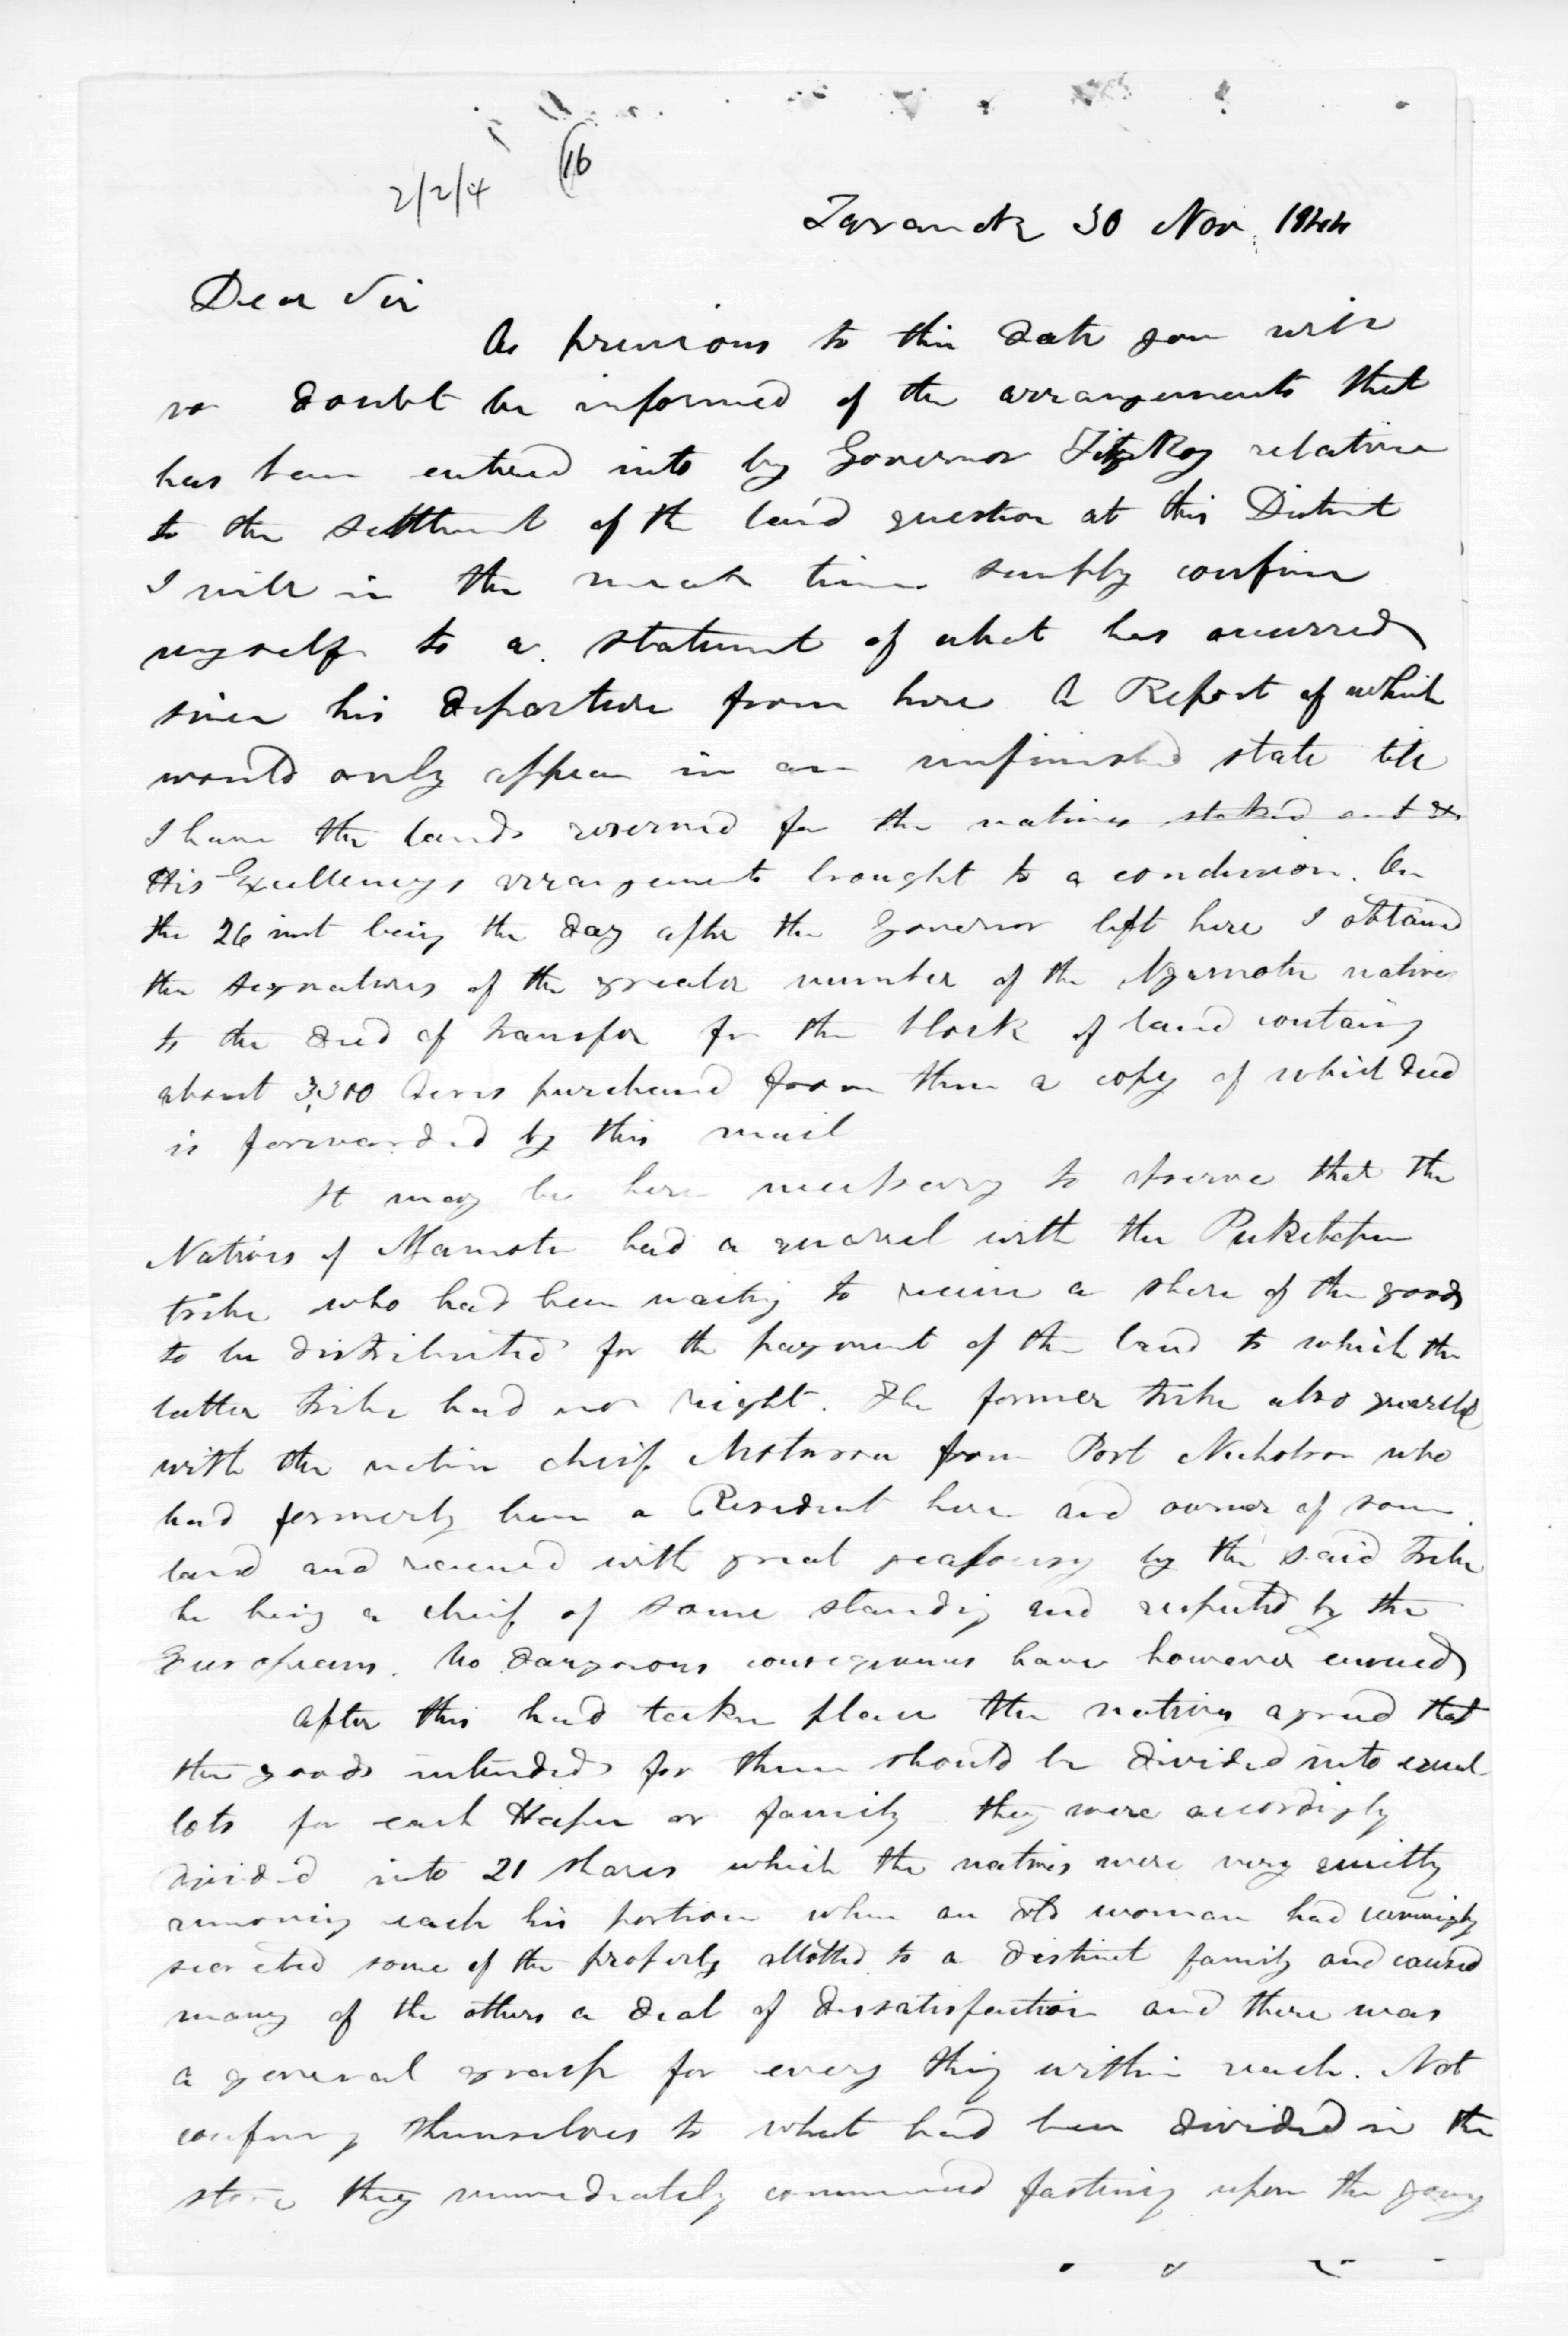 2/2/4
(16
Taranaki 30 Nov. 1844
Dear Sir
As previous to this date you will
no doubt be informed of the arrangements that
has been entered into by Governor FitzRoy relative
to the settlement of the land question at this District
I will in the mean time simply confine
myself to a statement of what has occurred
since his departure from here A Report of which
would only appear in an unfinished state till
I have the lands reserved for the natives staked out &
His Excellencys arrangements brought to a conclusion. On
the 26 inst being the day after the Governor left here I obtained
the signatures of the greater number of the Ngamotu natives
to the deed of transfer for the block of land containing
about 3,300 Acres purchased from them a copy of which deed
is forwarded by this mail
It may be here necessary to observe that the
Natives of Mamotu had a quarrel with the Puketapu
tribe who had been waiting to receive a share of the goods
to be distributed for the payment of the land to which the
latter tribe had no right. The former tribe also quarreled
with the native cheif Moturoa from Port Nicholson who
had formerly been a Resident here and owner of some
land and received with great jealousy by the said tribe
he being a cheif of some standing and respected by the
Europeans. No dangerous consequences have however ensued
After this had taken place the natives agreed that
the goods intended for them should be divided into equal
lots for each Hapu or family they were accordingly
divided into 21 shares which the natives were very quietly
removing each his portion when an old woman had cunningly
secreted some of the property allotted to a distinct family and caused
many of the others a deal of dissatisfaction and there was
a general grasp for every thing within reach. Not
confining themselves to what had been divided in the
store they immediately commenced fasting upon the